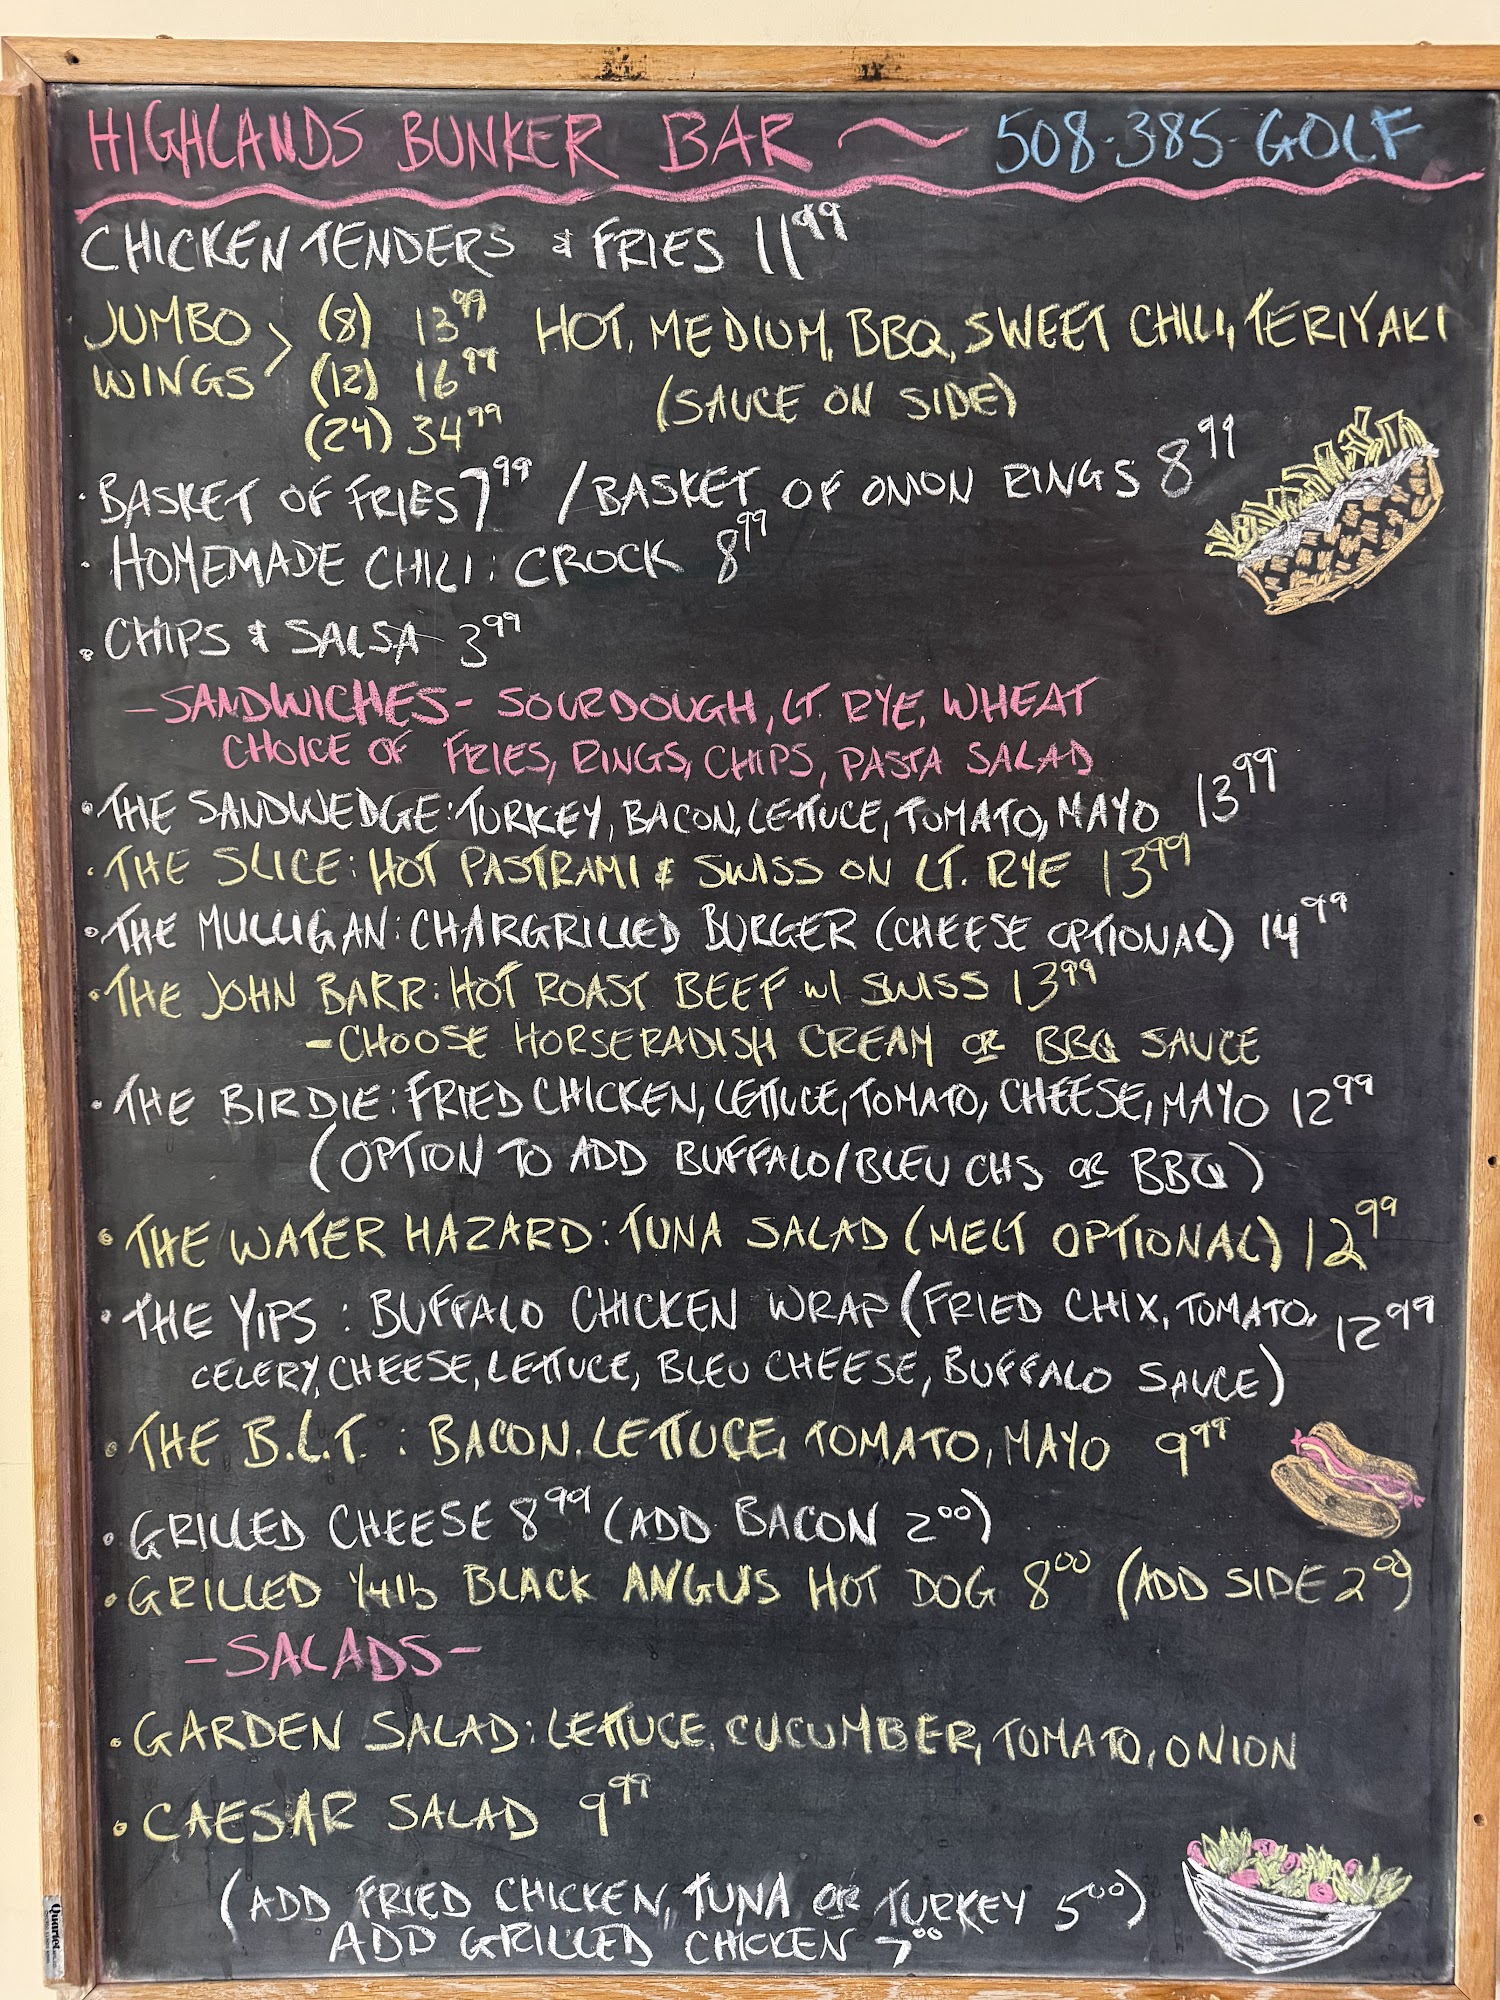 HIGHLANDS BUNKER BAR ~ 508-385-GOLF
CHICKEN TENDERS & FRIES 11.99
JUMBO WINGS > (8) 13.99 HOT, MEDIUM, BBQ, SWEET CHILI, TERIYAKI
(12) 16.99 (SAUCE ON SIDE)
(24) 34.99
• BASKET OF FRIES 7.99 / BASKET OF ONION RINGS 8.99
• HOMEMADE CHILI: CROCK 8.99
• CHIPS & SALSA 3.99
- SANDWICHES - SOURDOUGH, LT. RYE, WHEAT
CHOICE OF FRIES, RINGS, CHIPS, PASTA SALAD
• THE SANDWEDGE: TURKEY, BACON, LETTUCE, TOMATO, MAYO 13.99
• THE SLICE: HOT PASTRAMI & SWISS ON LT. RYE 13.99
• THE MULLIGAN: CHARGRILLED BURGER (CHEESE OPTIONAL) 14.99
• THE JOHN BARR: HOT ROAST BEEF w/ SWISS 13.99
- CHOOSE HORSERADISH CREAM OR BBQ SAUCE
• THE BIRDIE: FRIED CHICKEN, LETTUCE, TOMATO, CHEESE, MAYO 12.99
(OPTION TO ADD BUFFALO/BLEU CHS OR BBQ)
• THE WATER HAZARD: TUNA SALAD (MELT OPTIONAL) 12.99
• THE YIPS: BUFFALO CHICKEN WRAP (FRIED CHIX, TOMATO, 12.99
CELERY, CHEESE, LETTUCE, BLEU CHEESE, BUFFALO SAUCE)
• THE B.L.T.: BACON, LETTUCE, TOMATO, MAYO 9.99
• GRILLED CHEESE 8.99 (ADD BACON 2.00)
• GRILLED 1/4 lb BLACK ANGUS HOT DOG 8.00 (ADD SIDE 2.00)
- SALADS -
• GARDEN SALAD: LETTUCE, CUCUMBER, TOMATO, ONION
• CAESAR SALAD 9.99
(ADD FRIED CHICKEN, TUNA OR TURKEY 5.00)
ADD GRILLED CHICKEN 7.00
Quartet